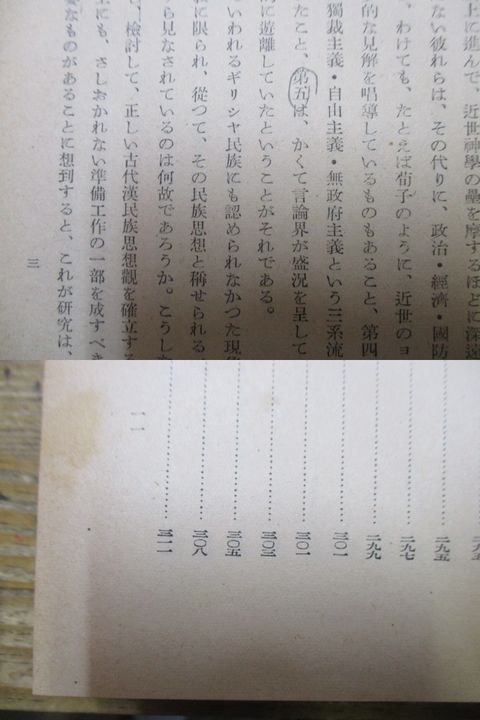 上に進んで、近世神學の壘を摩するほどに深遠
ない彼れらは、その代りに、政治・經濟・國防
、わけても、たとえば荀子のように、近世のヨ
的な見解を唱導しているものもあること、第四
獨裁主義・自由主義・無政府主義という三系流
たこと、第五は、かくて言論界が盛況を呈して
に遊離していたということがそれである。
いわれるギリシヤ民族にも認められなかつた現
に限られ、從つて、その民族思想と稱せられる
ら見なされているのは何故であろうか。こうし
、檢討して、正しい古代漢民族思想觀を確立する
上にも、さしおかれない準備工作の一部を成すべき
なものがあることに想到すると、これが研究は、
三
二九五
二九五
二九七
二九九
三〇一
三〇一
三〇三
三〇五
三〇八
三一一
一一